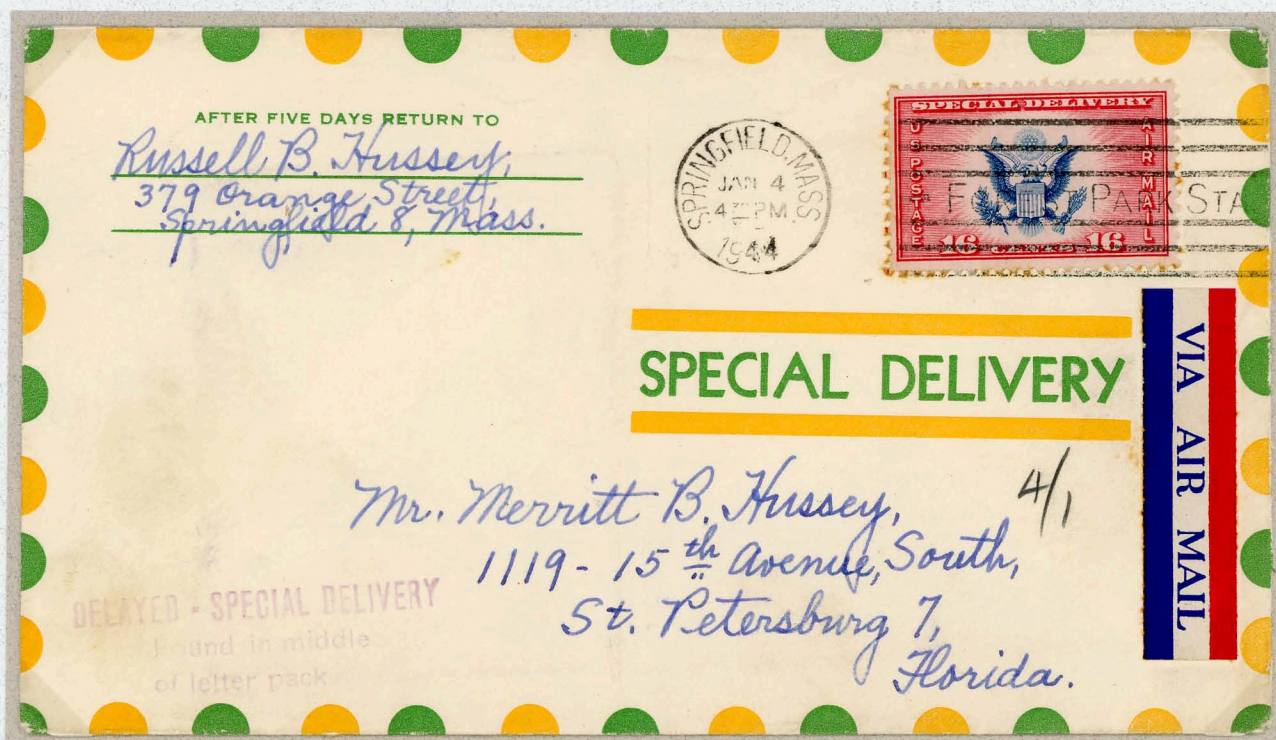 AFTER FIVE DAYS RETURN TO
Russell B. Hussey,
379 Orange Street,
Springfield 8, Mass.
SPRINGFIELD. MASS
JAN 4
4 30 PM
1944
SPECIAL DELIVERY
U S POSTAGE
AIR MAIL
16 CENTS 16
PARK STA
SPECIAL DELIVERY
VIA AIR MAIL
4/1
Mr. Merritt B. Hussey,
1119 - 15th Avenue, South,
St. Petersburg 7,
Florida.
DELAYED - SPECIAL DELIVERY
Found in middle
of letter pack